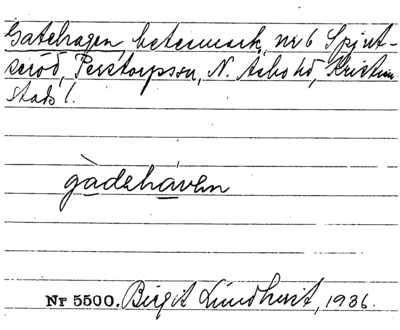 Gatehagen, betesmark, nr 6 Spjut-
seröd, Perstorpssn, N. Åsbo hd, Kristian
stads l.
gàdeháven
Nr 5500. Birgit Lundkvist, 1936.